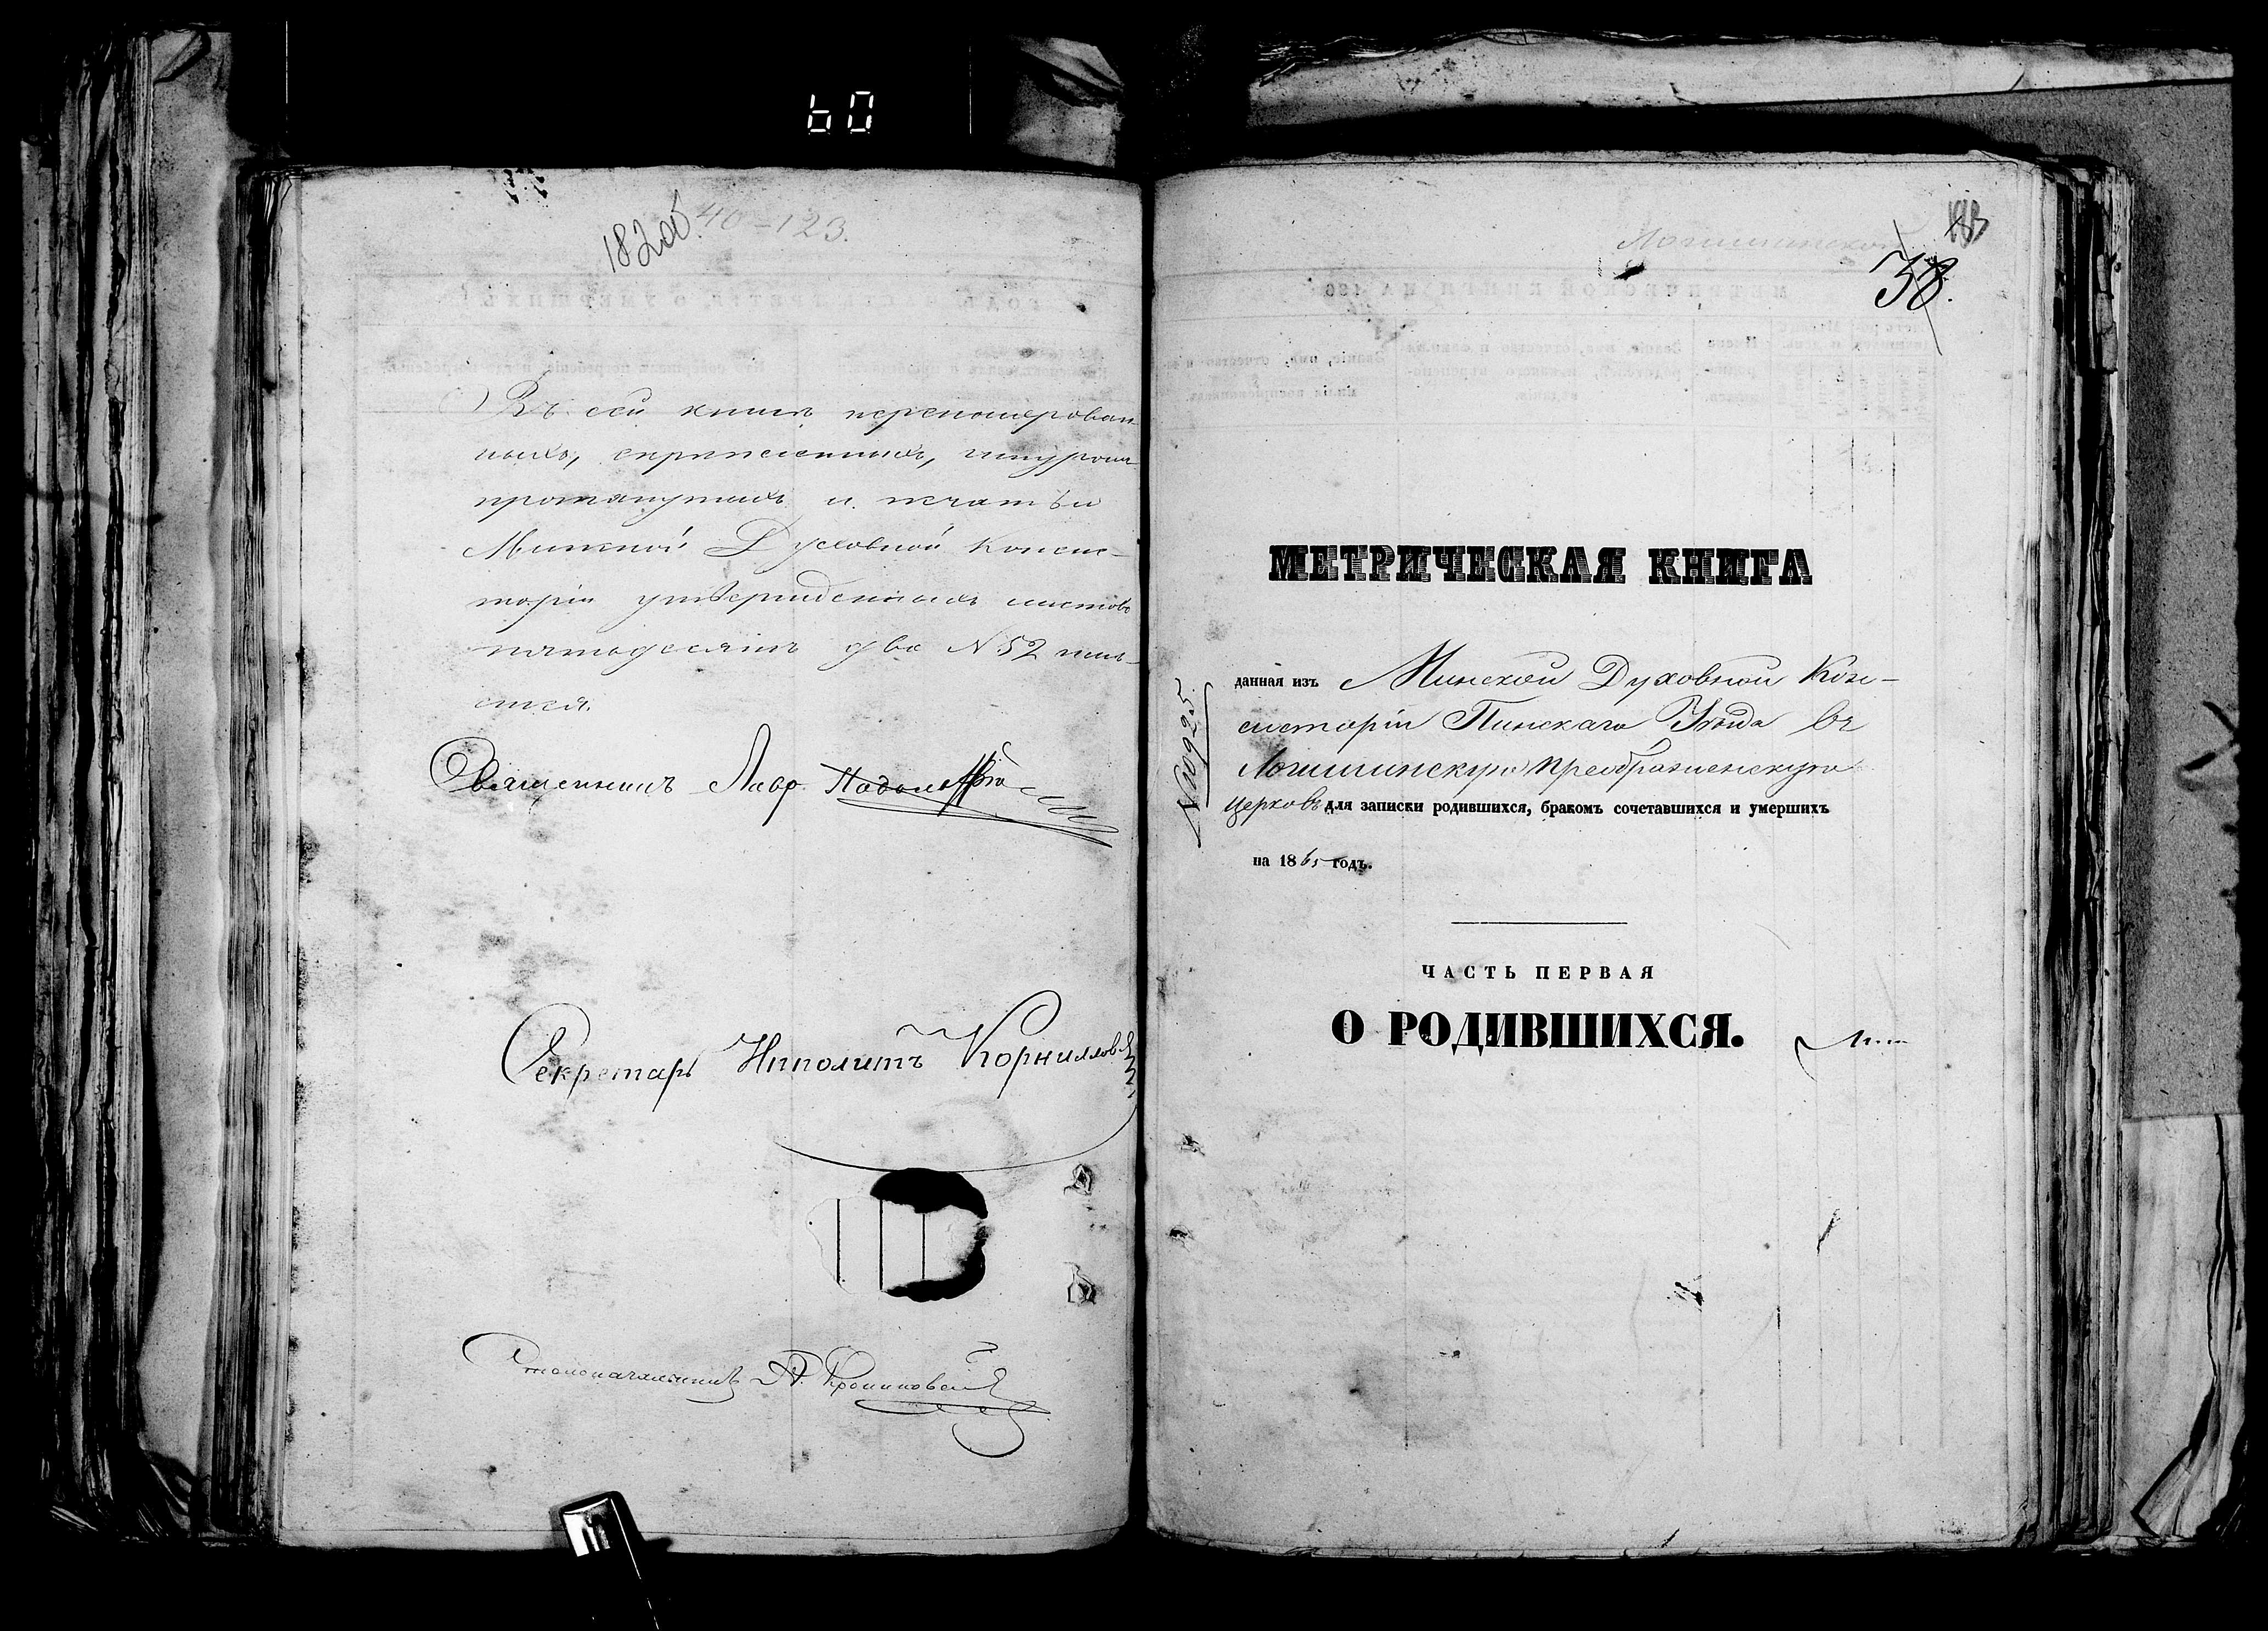 60
182об.
40-123.
Въ сей книгѣ перенумерован-
ныхъ, скрѣпленныхъ, шнуромъ
протянутыхъ и печатью
Минской Духовной Консис-
торіи утвержденныхъ листовъ
пятьдесятъ два N 52 имѣ-
ется.
Священникъ Лавр.
Секретарь Ипполитъ Корнилловъ
Столоначальникъ
183
38.
Логишинской
МЕТРИЧЕСКАЯ КНИГА
данная изъ Минской Духовной Кон-
систоріи Пинскаго Уѣзда въ
Логишинскую Преображенскую
церковь для записки родившихся, бракомъ сочетавшихся и умершихъ
на 1865 годъ.
N 10925.
ЧАСТЬ ПЕРВАЯ
О РОДИВШИХСЯ.